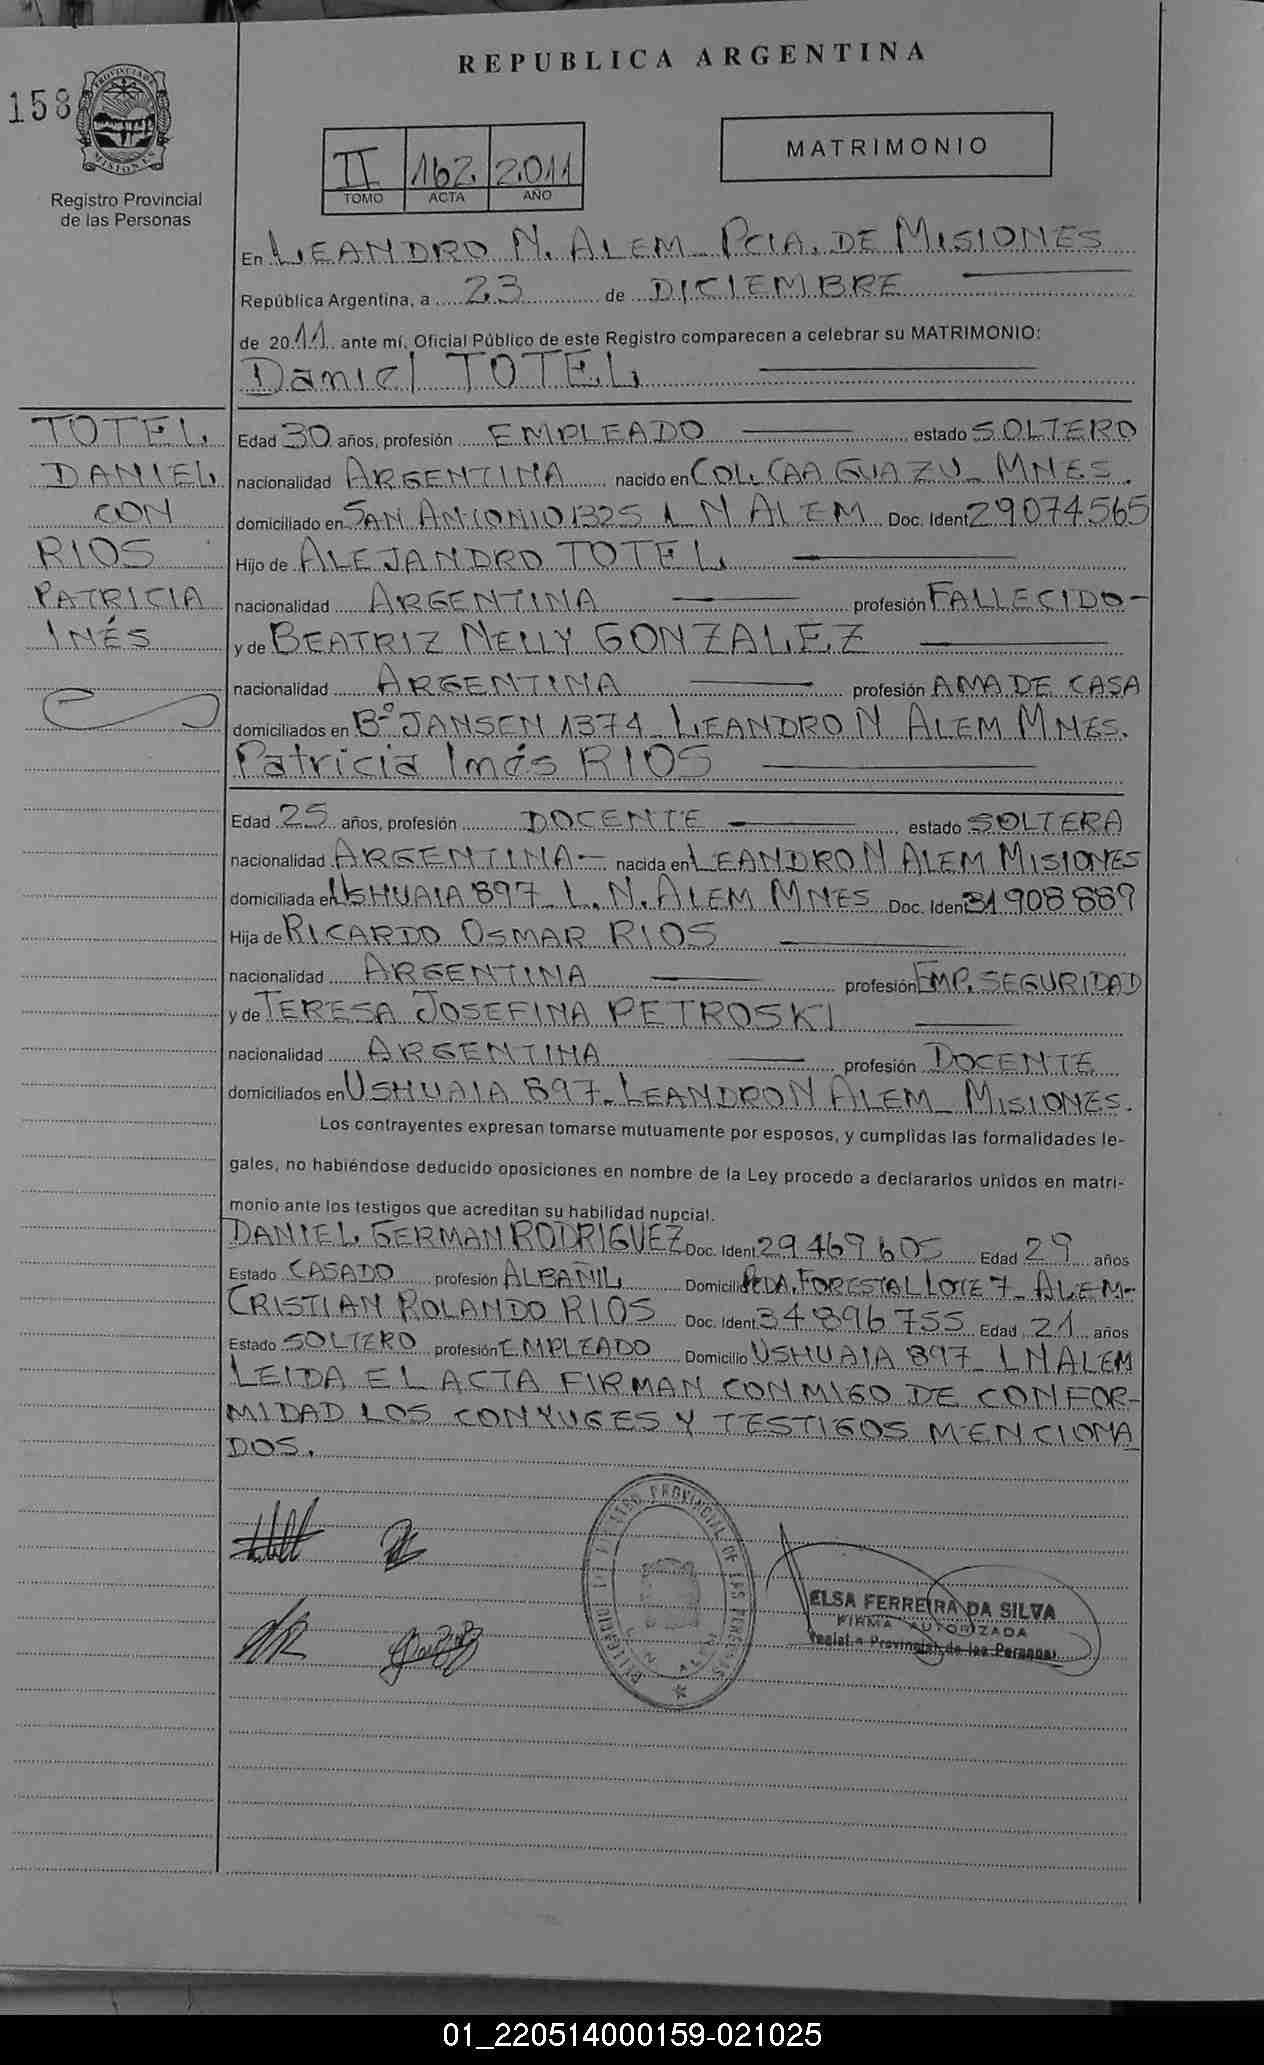 REPUBLICA ARGENTINA
158
PROVINCIA DE MISIONES
Registro Provincial
de las Personas
II 162. 2.011
TOMO ACTA AÑO
MATRIMONIO
En LEANDRO N. ALEM - PCIA. DE MISIONES
República Argentina, a 23 de DICIEMBRE
de 2011 ante mí, Oficial Público de este Registro comparecen a celebrar su MATRIMONIO:
Daniel TOTEL
TOTEL
DANIEL
CON
RIOS
PATRICIA
INÉS
Edad 30 años, profesión EMPLEADO estado SOLTERO
nacionalidad ARGENTINA nacido en COL. CAA GUAZU - MNES.
domiciliado en SAN ANTONIO 1325 L N ALEM Doc. Ident 29074565
Hijo de ALEJANDRO TOTEL
nacionalidad ARGENTINA profesión FALLECIDO-
y de BEATRIZ NELLY GONZALEZ
nacionalidad ARGENTINA profesión AMA DE CASA
domiciliados en Bº JANSEN 1374 - LEANDRO N ALEM MNES.
Patricia Inés RIOS
Edad 25 años, profesión DOCENTE estado SOLTERA
nacionalidad ARGENTINA - nacida en LEANDRO N ALEM MISIONES
domiciliada en USHUAIA 897 - L. N. ALEM MNES Doc. Iden 31 908 889
Hija de RICARDO OSMAR RIOS
nacionalidad ARGENTINA profesión EMP. SEGURIDAD
y de TERESA JOSEFINA PETROSKI
nacionalidad ARGENTINA profesión DOCENTE
domiciliados en USHUAIA 897 - LEANDRO N ALEM - MISIONES.
Los contrayentes expresan tomarse mutuamente por esposos, y cumplidas las formalidades le-
gales, no habiéndose deducido oposiciones en nombre de la Ley procedo a declararlos unidos en matri-
monio ante los testigos que acreditan su habilidad nupcial.
DANIEL GERMAN RODRIGUEZ Doc. Ident 29 469 605 Edad 29 años
Estado CASADO profesión ALBAÑIL Domicilio PCDA. FORESTAL LOTE 7 - ALEM-
CRISTIAN ROLANDO RIOS Doc. Ident. 34 896 755 Edad 21 años
Estado SOLTERO profesión EMPLEADO Domicilio USHUAIA 897 - L N ALEM
LEIDA EL ACTA FIRMAN CONMIGO DE CONFOR-
MIDAD LOS CONYUGES Y TESTIGOS MENCIONA
DOS.
REGISTRO PROVINCIAL DE LAS PERSONAS
ELSA FERREIRA DA SILVA
FIRMA AUTORIZADA
Provincial de las Personas
01_220514000159-021025